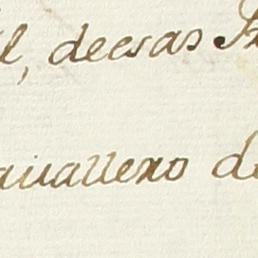 l, decsas
auallero de